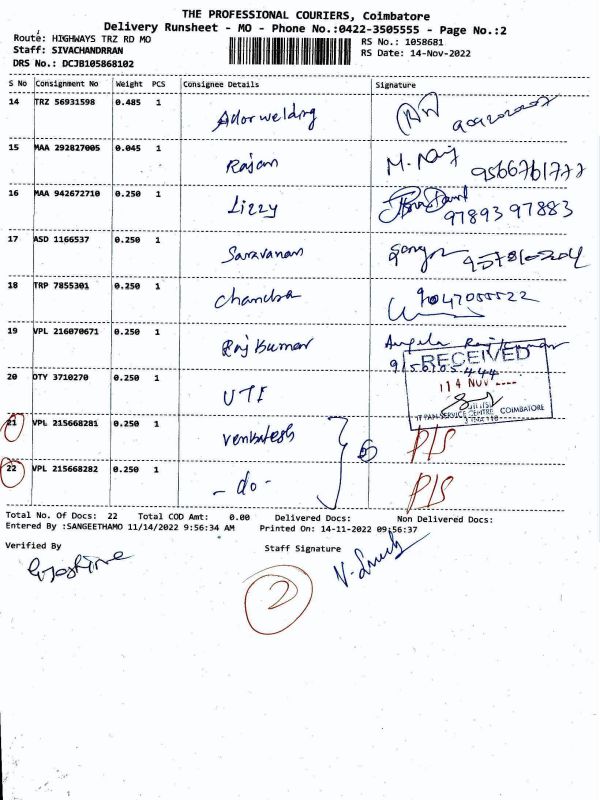 THE PROFESSIONAL COURIERS, Coimbatore
Delivery Runsheet - MO - Phone No.:0422-3505555 - Page No.:2
Route: HIGHWAYS TRZ RD MO
Staff: SIVACHANDRRAN
DRS No.: DCJB105868102
RS No.: 1058681
RS Date: 14-Nov-2022
S No Consignment No Weight PCS Consignee Details Signature
14 TRZ 56931598 0.485 1 Ador welding
15 MAA 292827005 0.045 1 Rajan
16 MAA 942672710 0.250 1 Lizzy 97893 97883
17 ASD 1166537 0.250 1 Saravanan
18 TRP 7855301 0.250 1 Chandra
19 VPL 216070671 0.250 1 Raj Kumar Angela
RECEIVED
20 DTY 3710270 0.250 1 UTI
14 NOV
PAN SERVICE CENTRE COIMBATORE
21 VPL 215668281 0.250 1 Venkatesh P/S
22 VPL 215668282 0.250 1 - do - P/S
Total No. Of Docs: 22 Total COD Amt: 0.00 Delivered Docs: Non Delivered Docs:
Entered By :SANGEETHAMO 11/14/2022 9:56:34 AM Printed On: 14-11-2022 09:56:37
Verified By Staff Signature
2